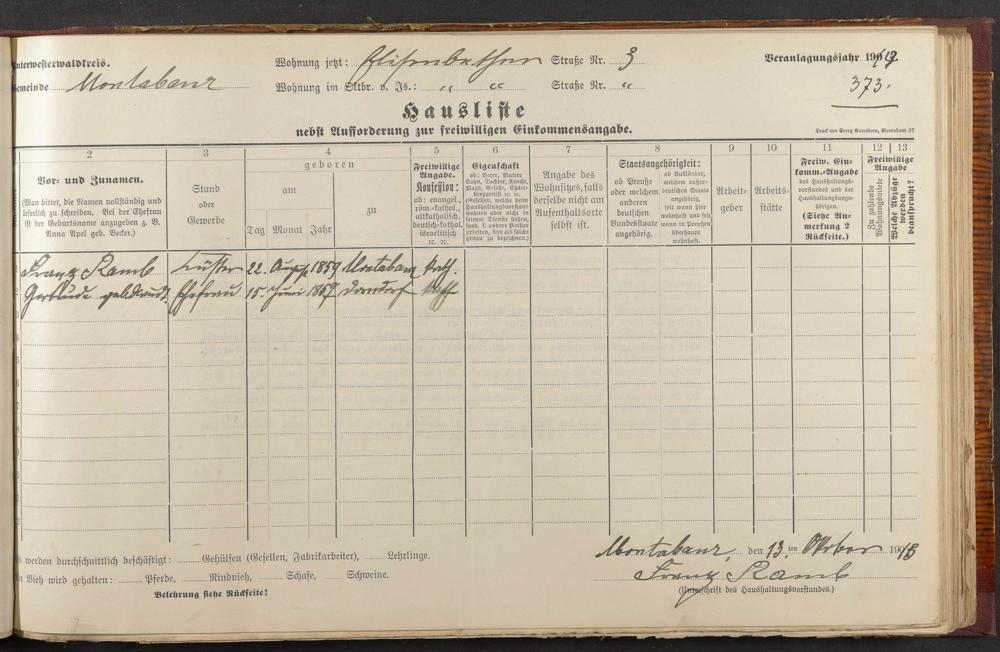 Unterwesterwaldkreis.
Wohnung jetzt: Elisenbethen Straße Nr. 3
Veranlagungsjahr 19
Gemeinde Montabaur
Wohnung im Oktbr. v. Js.: " " Straße Nr. "
373.
Hausliste
nebst Aufforderung zur freiwilligen Einkommensangabe.
Druck von Georg Sauerborn, Montabaur 07
2
3
4
5
6
7
8
9
10
11
12
13
Vor- und Zunamen.
(Man bittet, die Namen vollständig und
leserlich zu schreiben. Bei der Ehefrau
ist der Geburtsname anzugeben z. B.
Anna Apel geb. Becker.)
Stand
oder
Gewerbe
geboren
am
Tag Monat Jahr
zu
Freiwillige
Angabe.
Konfession:
ob: evangel.,
röm.-kathol.,
altkatholisch,
deutsch-kathol.
israelitisch
ic. ic.
Eigenschaft
ob: Vater, Mutter
Sohn, Tochter, Knecht,
Magd, Geselle, Cham-
bregarnist ic. ic.
(Gesellen, welche beim
Haushaltungsvorstand
wohnen aber nicht in
seinem Dienste stehen,
genau zu bezeichnen.)
Angabe des
Wohnsitzes, falls
derselbe nicht am
Aufenthaltsorte
selbst ist.
Staatsangehörigkeit:
ob Preuße
oder welchem
anderen
deutschen
Bundesstaate
angehörig.
ob Ausländer,
welchem außer-
deutschen Staate
angehörig,
seit wann hier
wohnhaft und seit
wann in Preußen
überhaupt
wohnhaft.
Arbeit-
geber
Arbeits-
stätte
Freiw. Ein-
komm.-Angabe
des Haushaltungs-
vorstandes und der
Haushaltungsange-
hörigen.
(Siehe An-
merkung 2
Rückseite.)
Freiwillige
Angabe
Zu zahlende
Wohnungsmiete
Welche Abzüge
werden
beansprucht?
Franz Kamb Küster 22. August 1859 Montabaur kath.
Gertrude geb. Ehefrau 15. Juni 1867 Dorndorf kath
werden durchschnittlich beschäftigt: Gehülfen (Gesellen, Fabrikarbeiter), Lehrlinge.
Vieh wird gehalten: Pferde, Rindvieh, Schafe, Schweine.
Belehrung siehe Rückseite!
Montabaur, den 13. ten Oktober 1918
Franz Kamb
(Unterschrift des Haushaltungsvorstandes.)